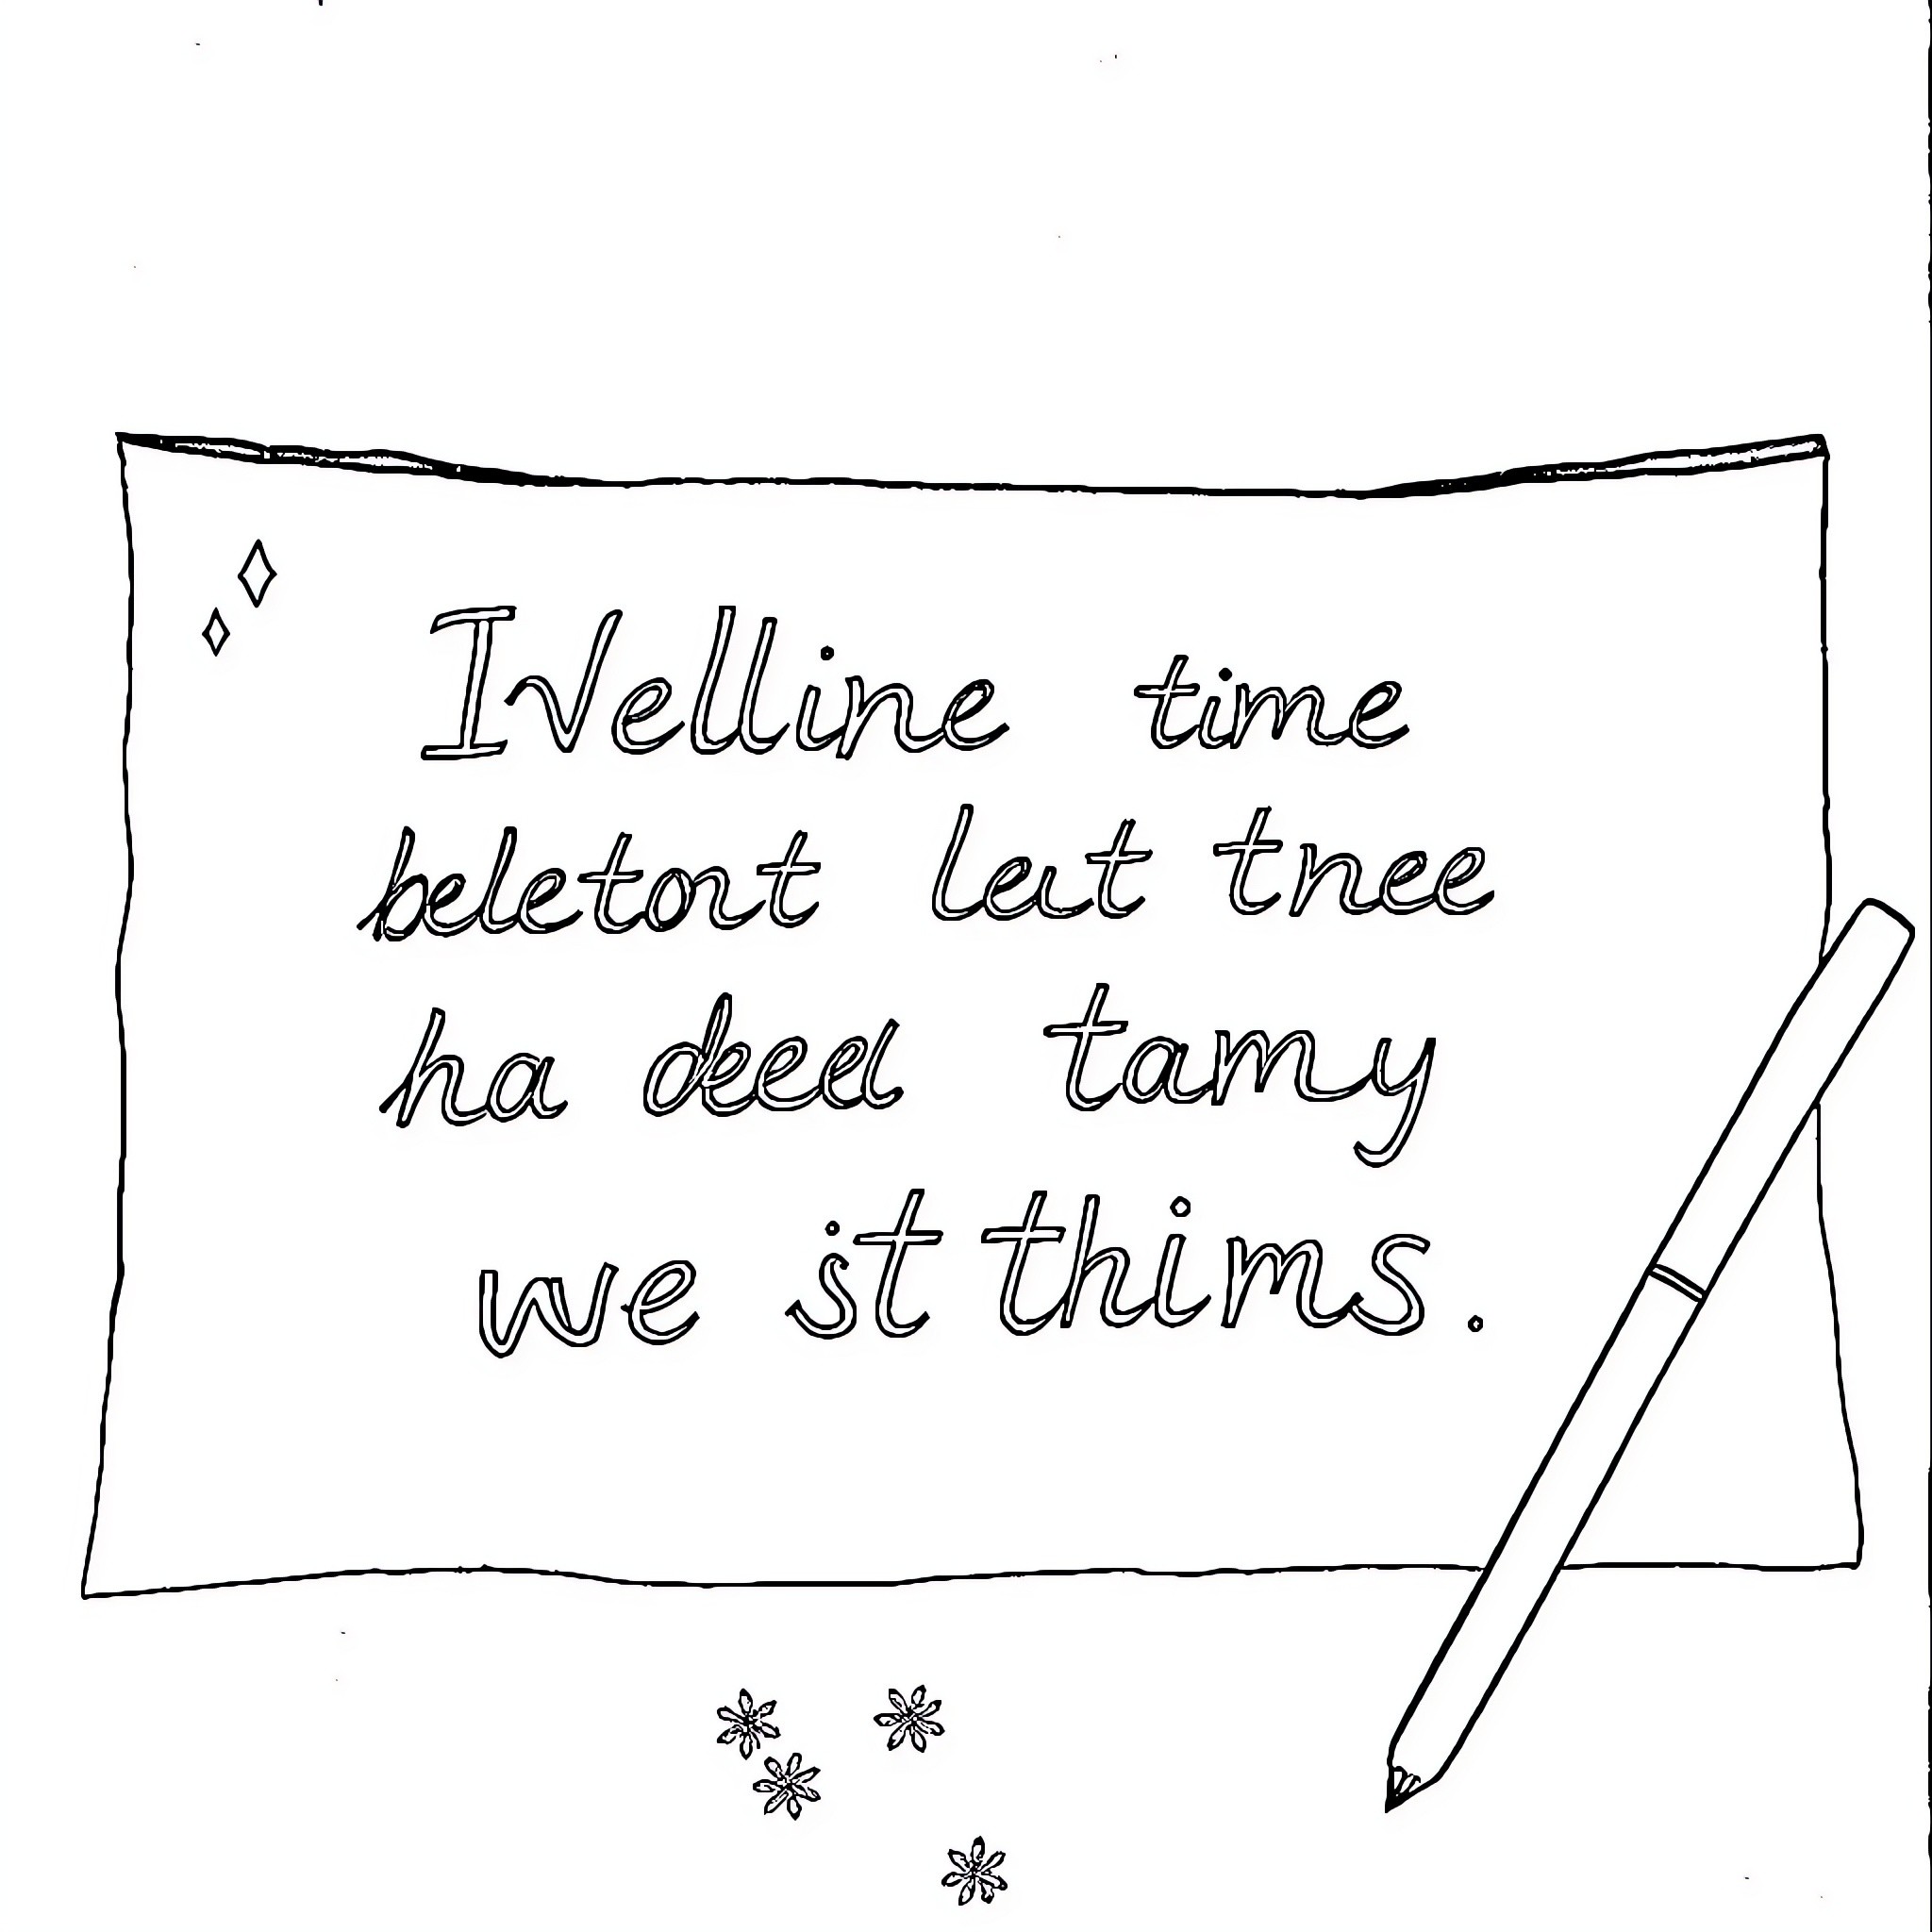 INelline time
beletont leat tnee
ha deei tamy
we st thims.